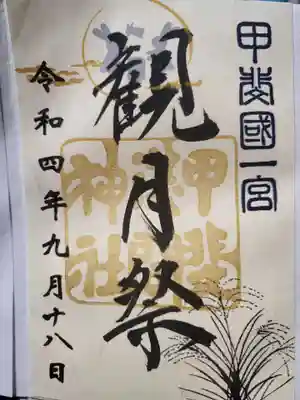 甲斐國一宮
観月祭
神社
令和四年九月十八日